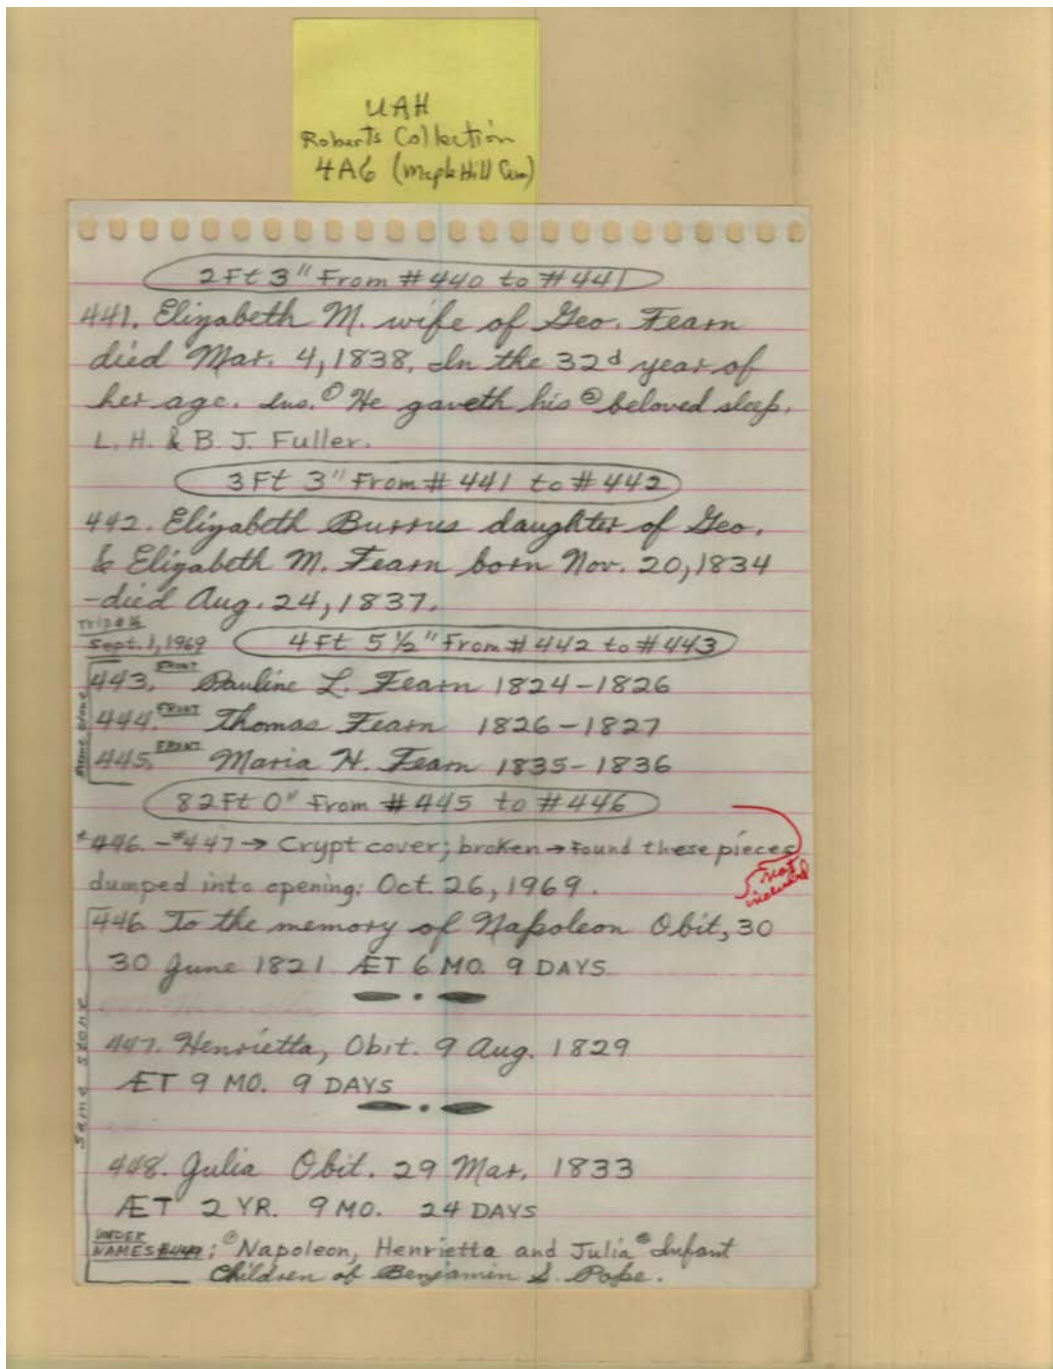 UAH
Roberts Collection
4A6 (Maple Hill Cem)
2Ft 3" From #440 to #441
441. Elizabeth M. wife of Geo. Fearn
died Mar. 4, 1838. In the 32d year of
her age. Ins. ① He gaveth his ② beloved sleep.
L. H. & B. J. Fuller.
3Ft 3" From #441 to #442
442. Elizabeth Burrus daughter of Geo.
& Elizabeth M. Fearn born Nov. 20, 1834
-died Aug. 24, 1837.
Trip #
Sept. 1, 1969
4Ft 5 1/2" From #442 to #443
443. FRONT Pauline L. Fearn 1824-1826
444. FRONT Thomas Fearn 1826-1827
445. FRONT Maria H. Fearn 1835-1836
Same stone
82Ft 0" From #445 to #446
#446 - #447 → Crypt cover; broken → Found these pieces
dumped into opening: Oct. 26, 1969.
not
included
446. To the memory of Napoleon Obit, 30
30 June 1821 ÆT 6 MO. 9 DAYS
447. Henrietta, Obit. 9 Aug. 1829
ÆT 9 MO. 9 DAYS
Same stone
448. Julia Obit. 29 Mar. 1833
ÆT 2 YR. 9 MO. 24 DAYS
UNDER
NAMES : ① Napoleon, Henrietta and Julia ② Infant
Children of Benjamin S. Pope.